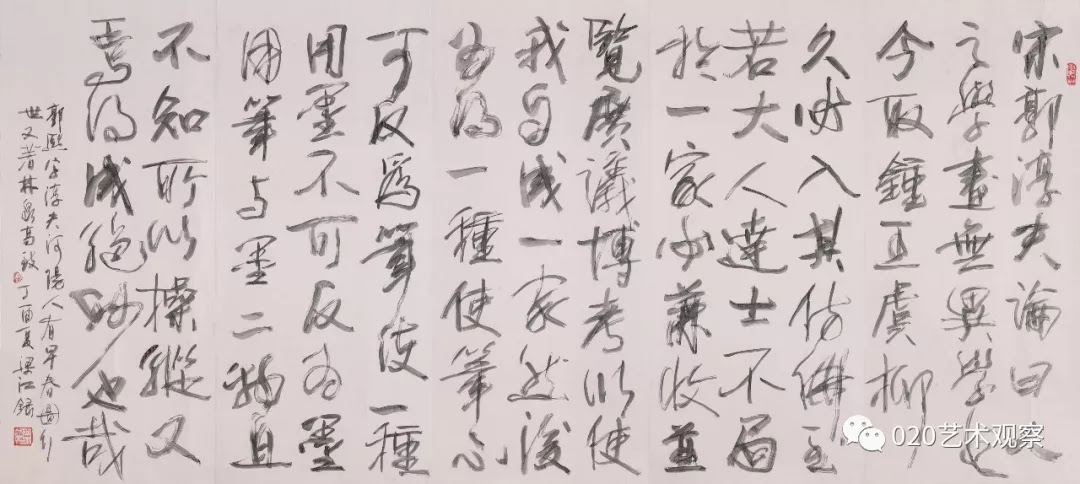 宋郭淳夫論曰人
之學畫無異學书
今取鍾王虞柳
久必入其仿佛至
若大人達士不局
於一家必兼收並
覽廣議博考以使
我自成一家然後
為得一種使筆不
可反為筆使一種
用墨不可反為墨
用筆与墨二物且
不知所以操縱又
焉得成絕妙也哉
郭熙字淳夫河陽人有早春圖行
世又著林泉高致 丁酉夏梁江錄
020艺术观察